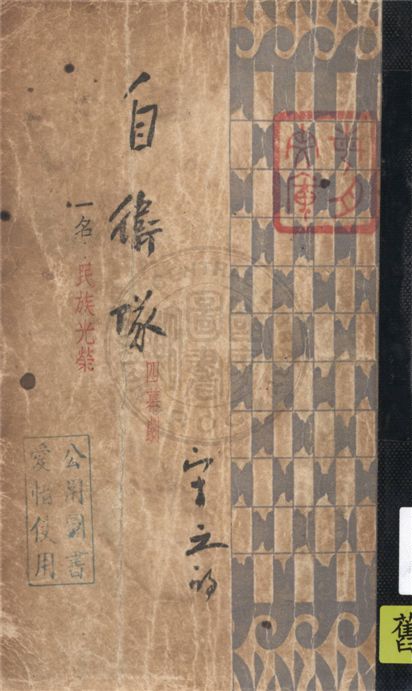 自衛隊
一名 民族光榮
四幕劇
宋之的
公用圖書
愛惜使用
圖書
舊